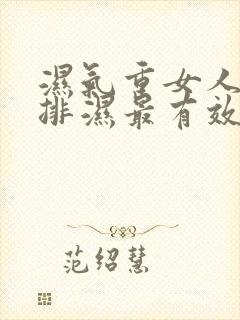 濕氣重女人
排濕最有效
范绍慧